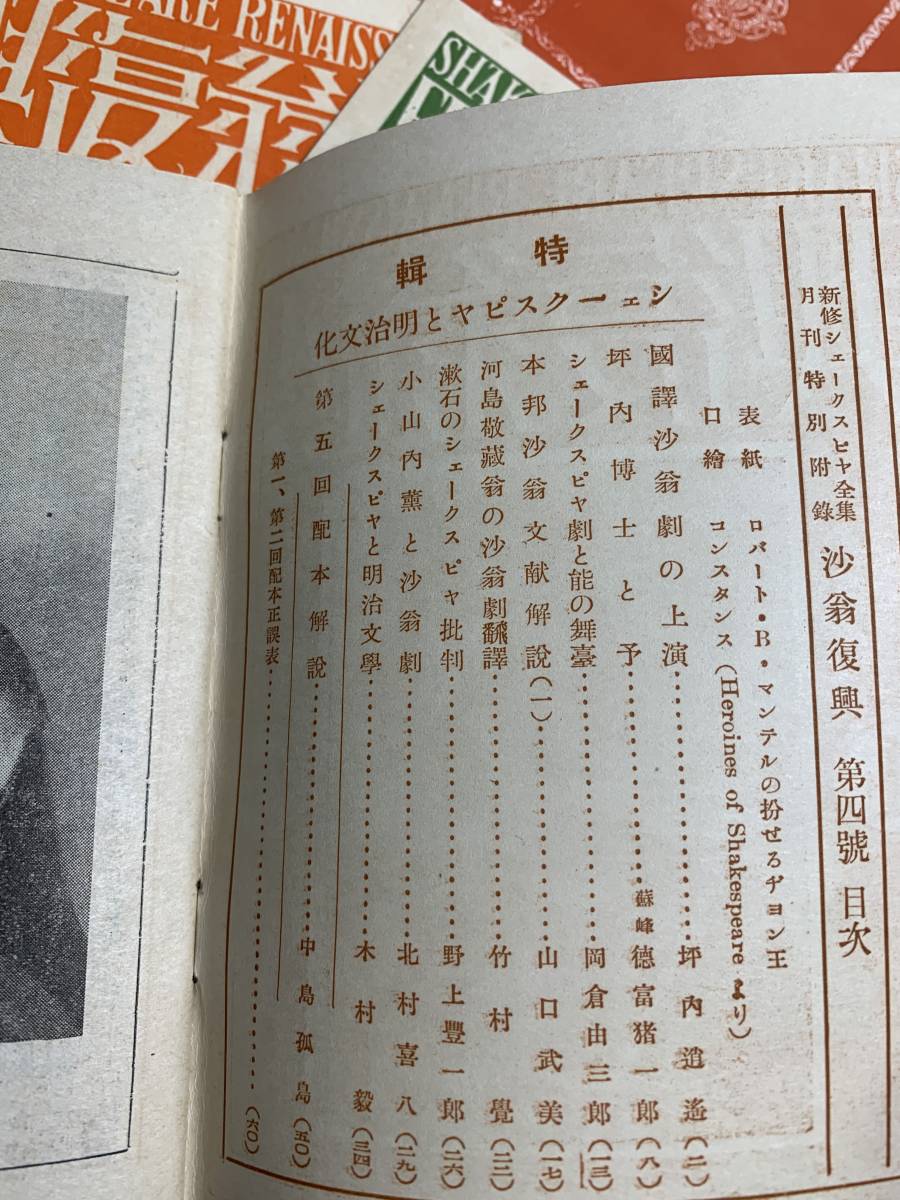 新修シェークスピヤ全集
月刊特別附錄
沙翁復興 第四號 目次
表紙 ロバート・B・マンテルの扮せるヂヨン王
口繪 コンスタンス(Heroines of Shakespeare より)
特輯
シェークスピヤと明治文化
國譯沙翁劇の上演……坪內道遙(二)
坪內博士と予……蘇峰 德富猪一郎(八)
シェークスピヤ劇と能の舞臺……岡倉由三郎(一三)
本邦沙翁文献解說(一)……山口武美(一七)
河島敬藏翁の沙翁劇飜譯……竹村覺(二二)
漱石のシェークスピヤ批判……野上豐一郎(二六)
小山內薰と沙翁劇……北村喜八(二九)
シェークスピヤと明治文學……木村毅(三四)
第五回配本解說……中島孤島(五〇)
第一、第二回配本正誤表……(六〇)
RENAISS
SHAK